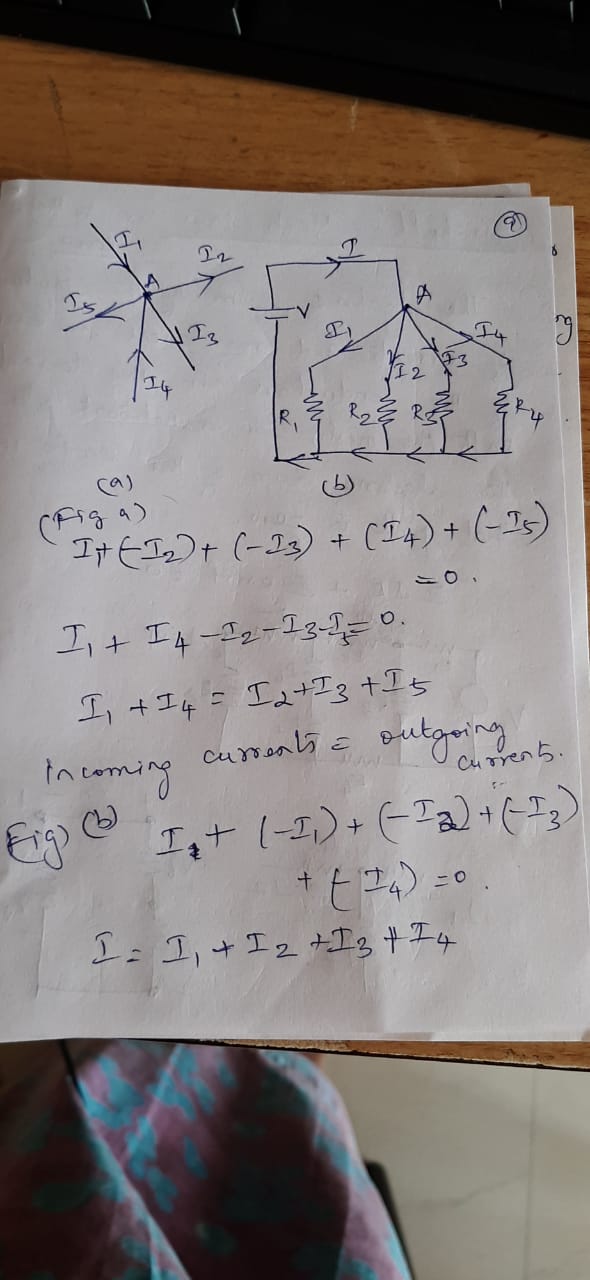 9
I1
I2
A
I5
I3
I4
(a)
I
V
A
I1
I2
I3
I4
R1
R2
R3
R4
(b)
(Fig a)
I1+(-I2)+(-I3)+(I4)+(-I5)
=0.
I1+I4-I2-I3-I5=0.
I1+I4=I2+I3+I5
Incoming currents = outgoing
currents.
Fig) (b) I+(-I1)+(-I2)+(-I3)
+(-I4)=0.
I=I1+I2+I3+I4
ng